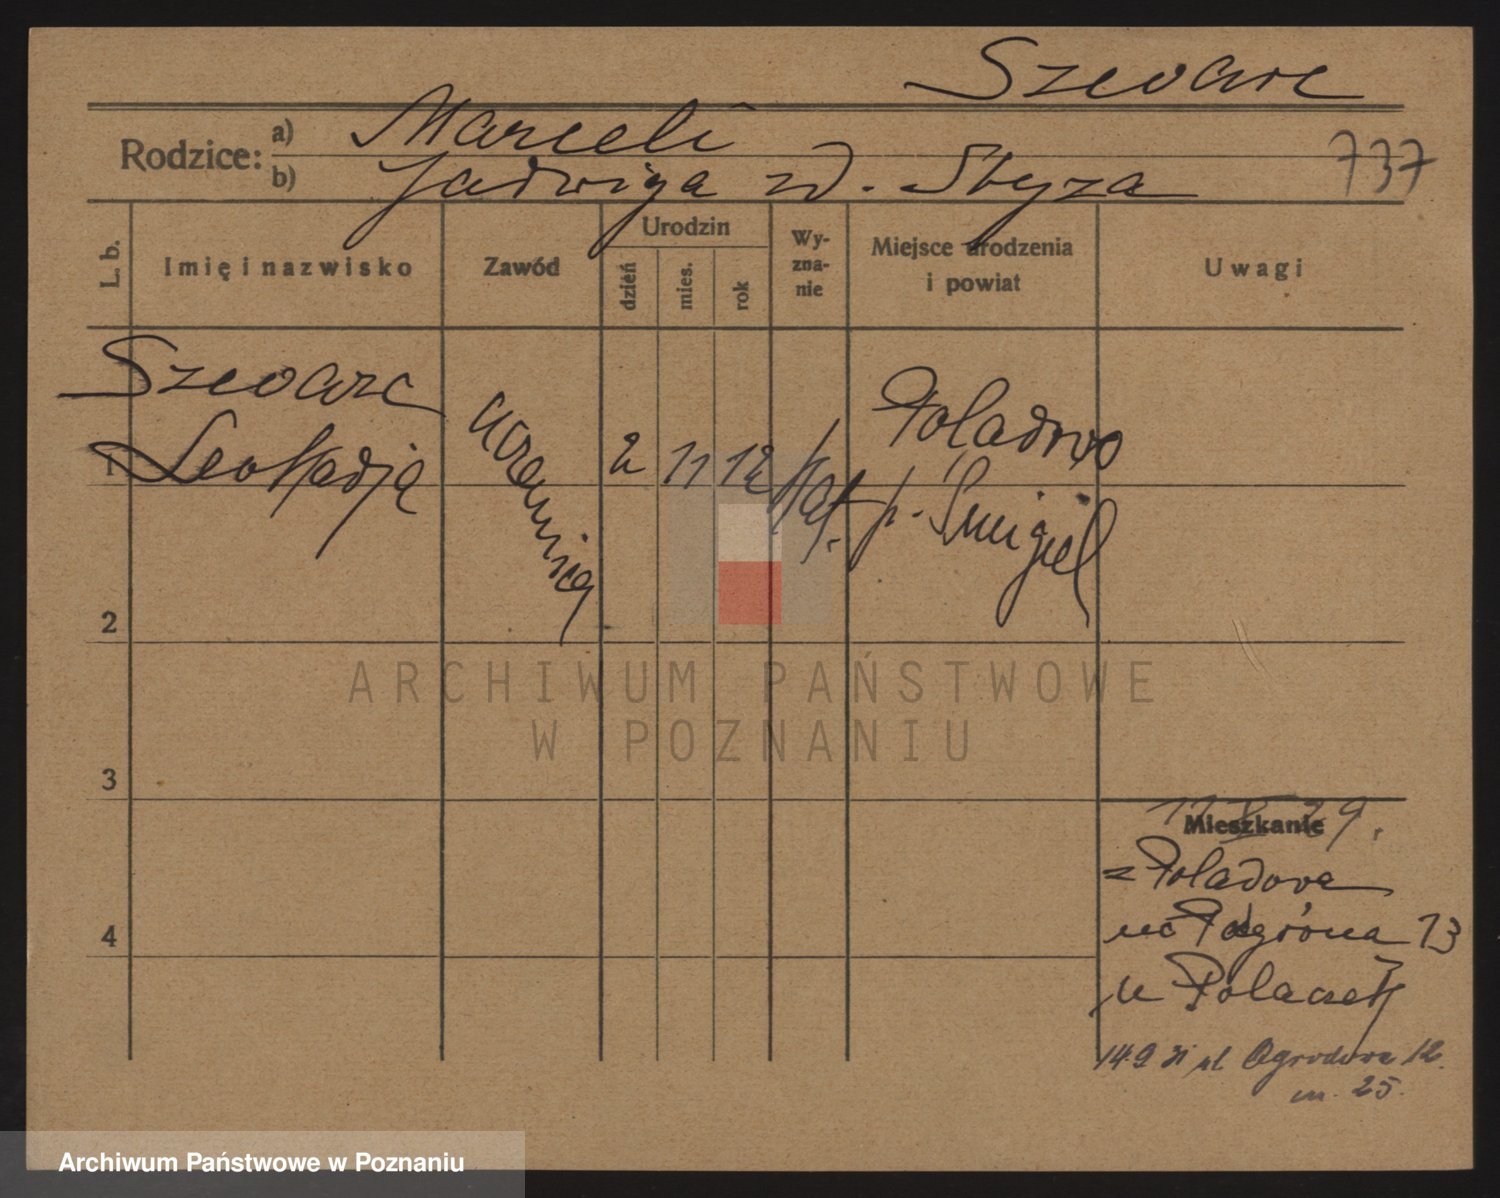 Szewarc
Rodzice: a) Marceli
b) Jadwiga zd. Styza
737
L. b. Imię i nazwisko Zawód Urodzin dzień mies. rok Wy-zna-nie Miejsce urodzenia i powiat Uwagi
Szewarc
1 Leokadja uczennica 2 11 12 kat. Poladowo
p. Śmigiel
2
ARCHIWUM PAŃSTWOWE
W POZNANIU
3
Mieszkanie
z Poladowa
na Podgórna 13
4
u Polaczek
14.9 31 ul Ogrodowa 12.
m. 25.
Archiwum Państwowe w Poznaniu